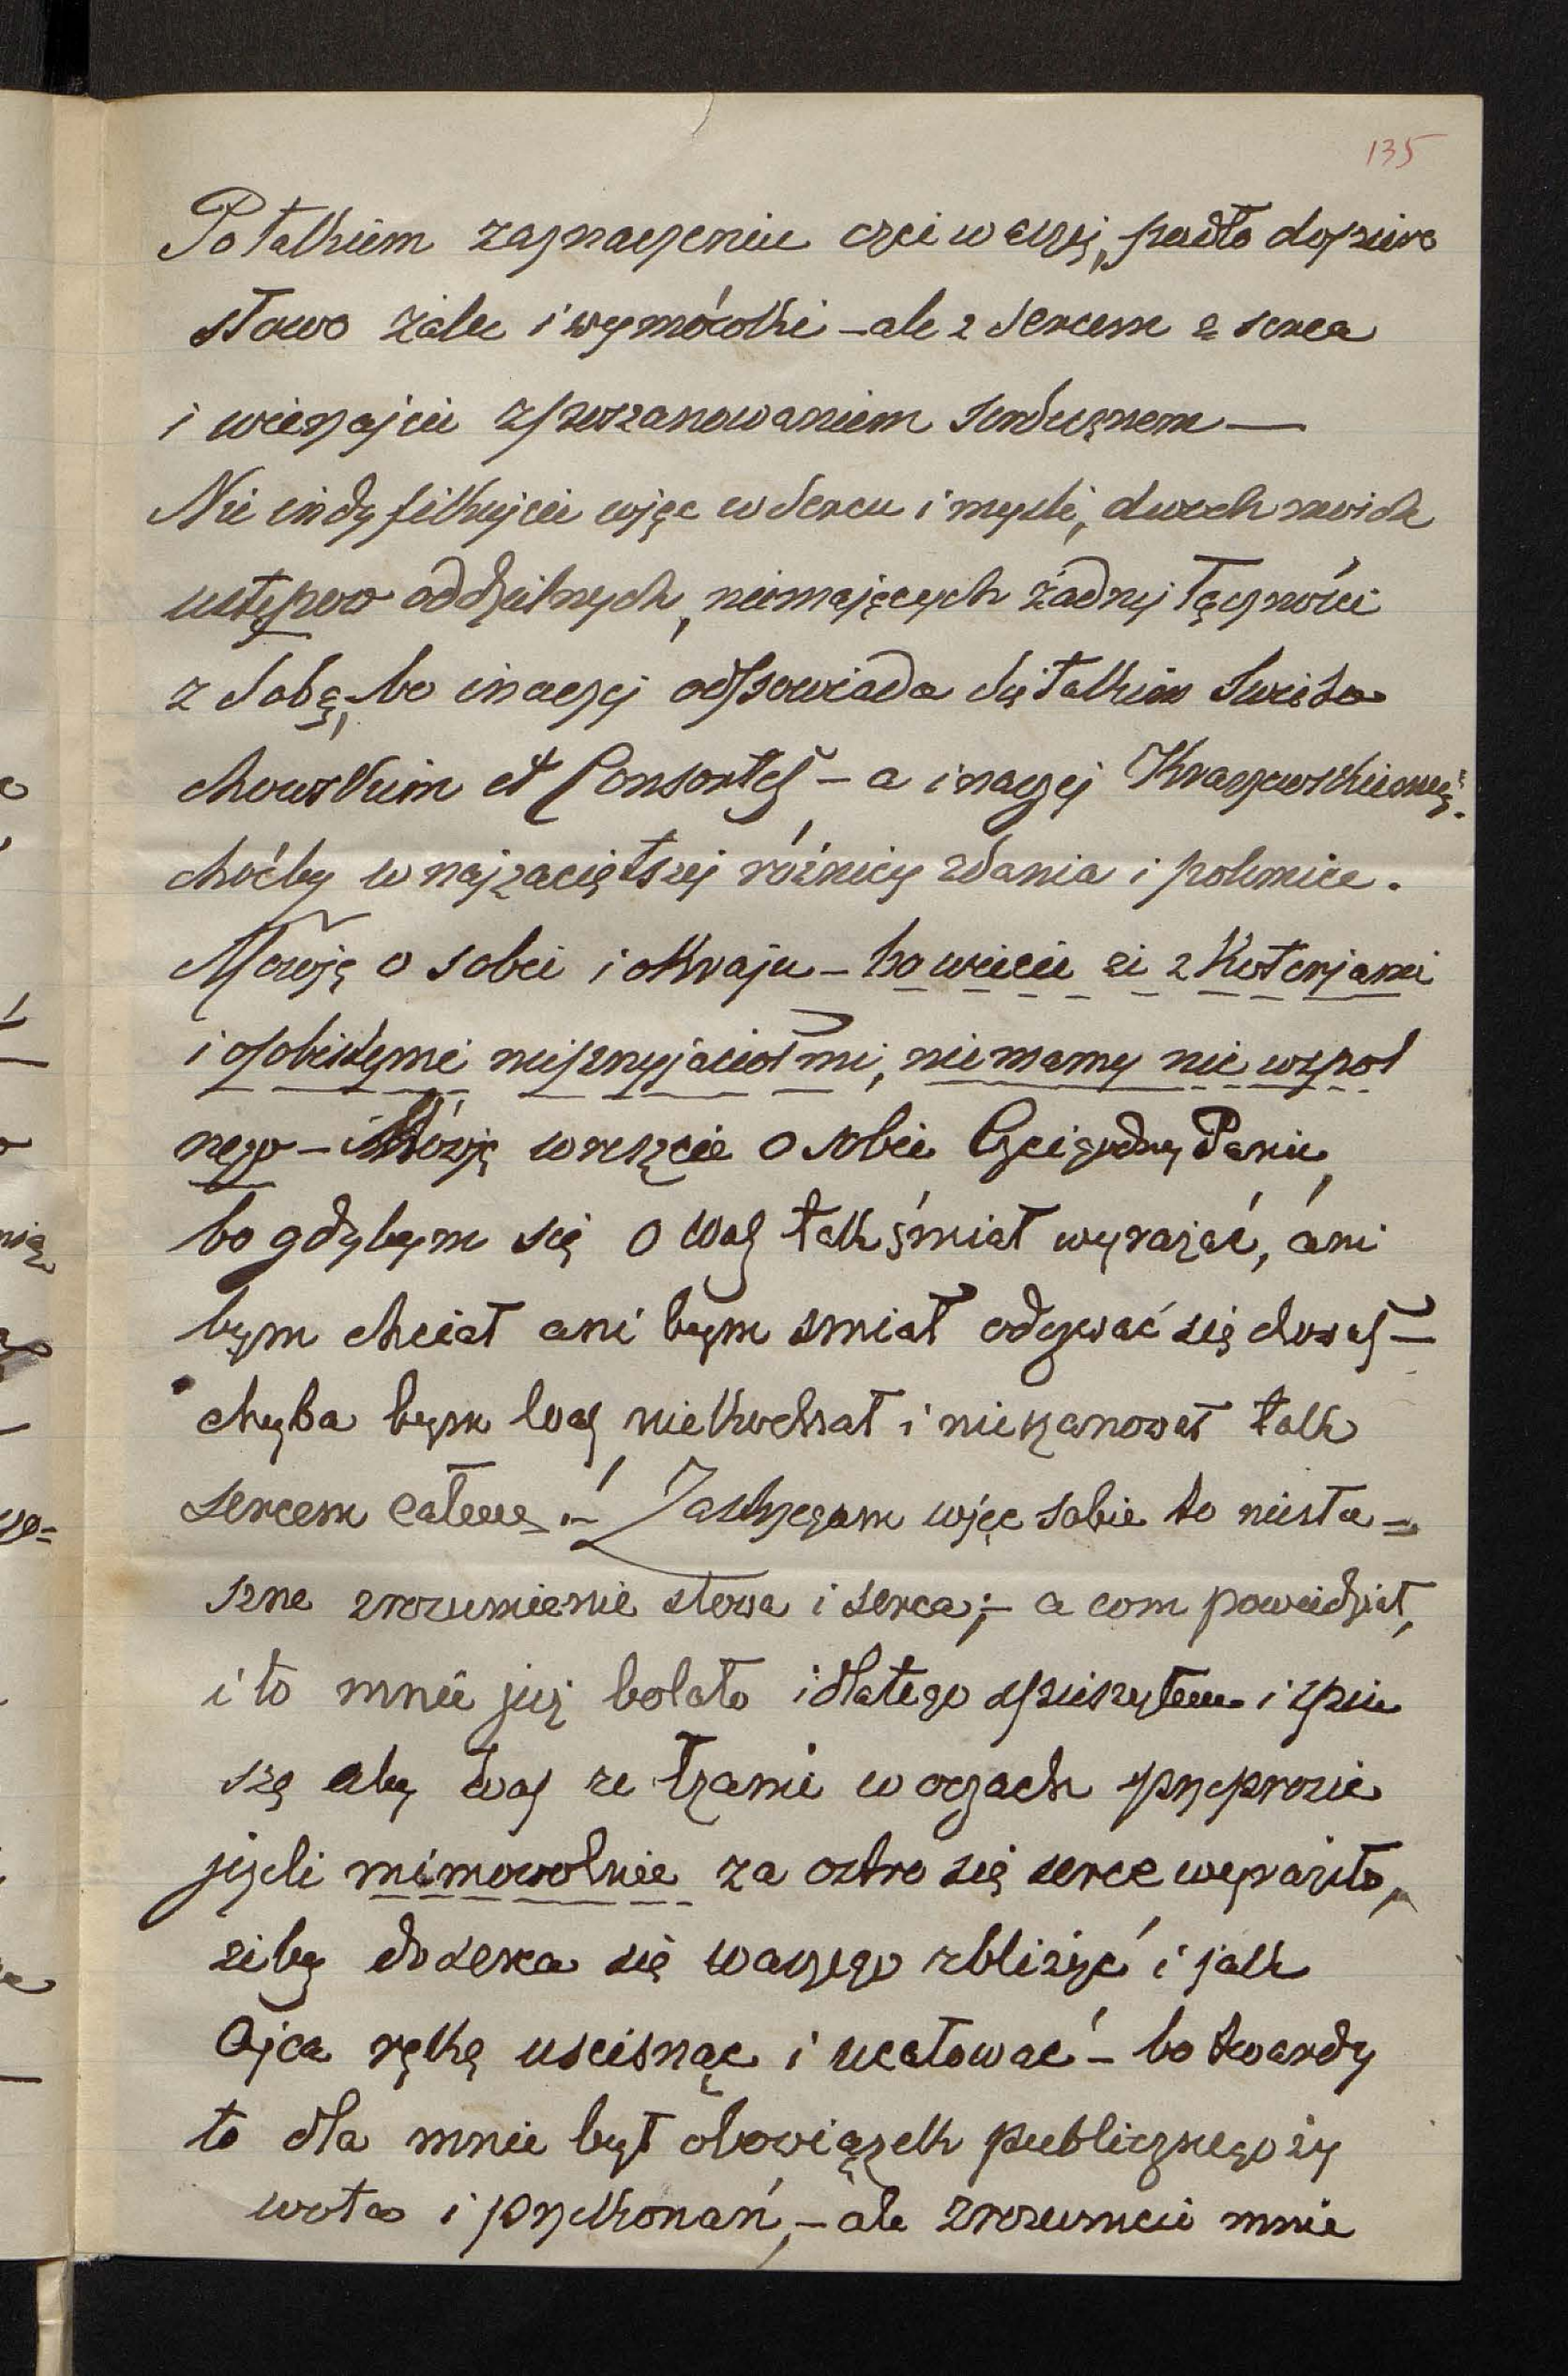 135
Po takiem zaznaczeniu czci waszej, padło dopiero
słowo żalu i wymówki – ale z sercem z serca
i wierzajcie z poszanowaniem serdecznem —
Nie indyfikujcie więc w sercu i myśli, dwóch moich
ustępów oddzielnych, niemających żadnej łączności
z sobą, bo inaczej odpowiada się takim Święto
chowskim et Consortes – a inaczej Kraszewskiemu
choćby w najzaciętszej różnicy zdania i polemice.
Mówię o sobie i o Kraju – bo wiecie że z Koterjami
i osobistymi nieprzyjaciołmi, nie mamy nic wspól
nego – Mówię wreszcie o sobie Czcigodny Panie,
bo gdybym się o Was tak śmiał wyrażać, ani
bym chciał ani bym smiał odezwać się do was –
chyba bym Was niekochał i nieszanował tak
sercem całem. – Zastrzegam więc sobie to
zrozumienie słowa i serca; – a com powiedział,
i to mnie już bolało i dlatego spieszyłem i spie
szę aby Was ze łzami w oczach przeprosić
jeżeli mimowolnie za ostro się serce wyraziło,
żeby do serca się waszego zbliżyć i jak
Ojca rękę uscisnąc i ucałować – bo twardy
to dla mnie był obowiązek publicznego ży
wota i przekonań, – ale zrozumcie mnie